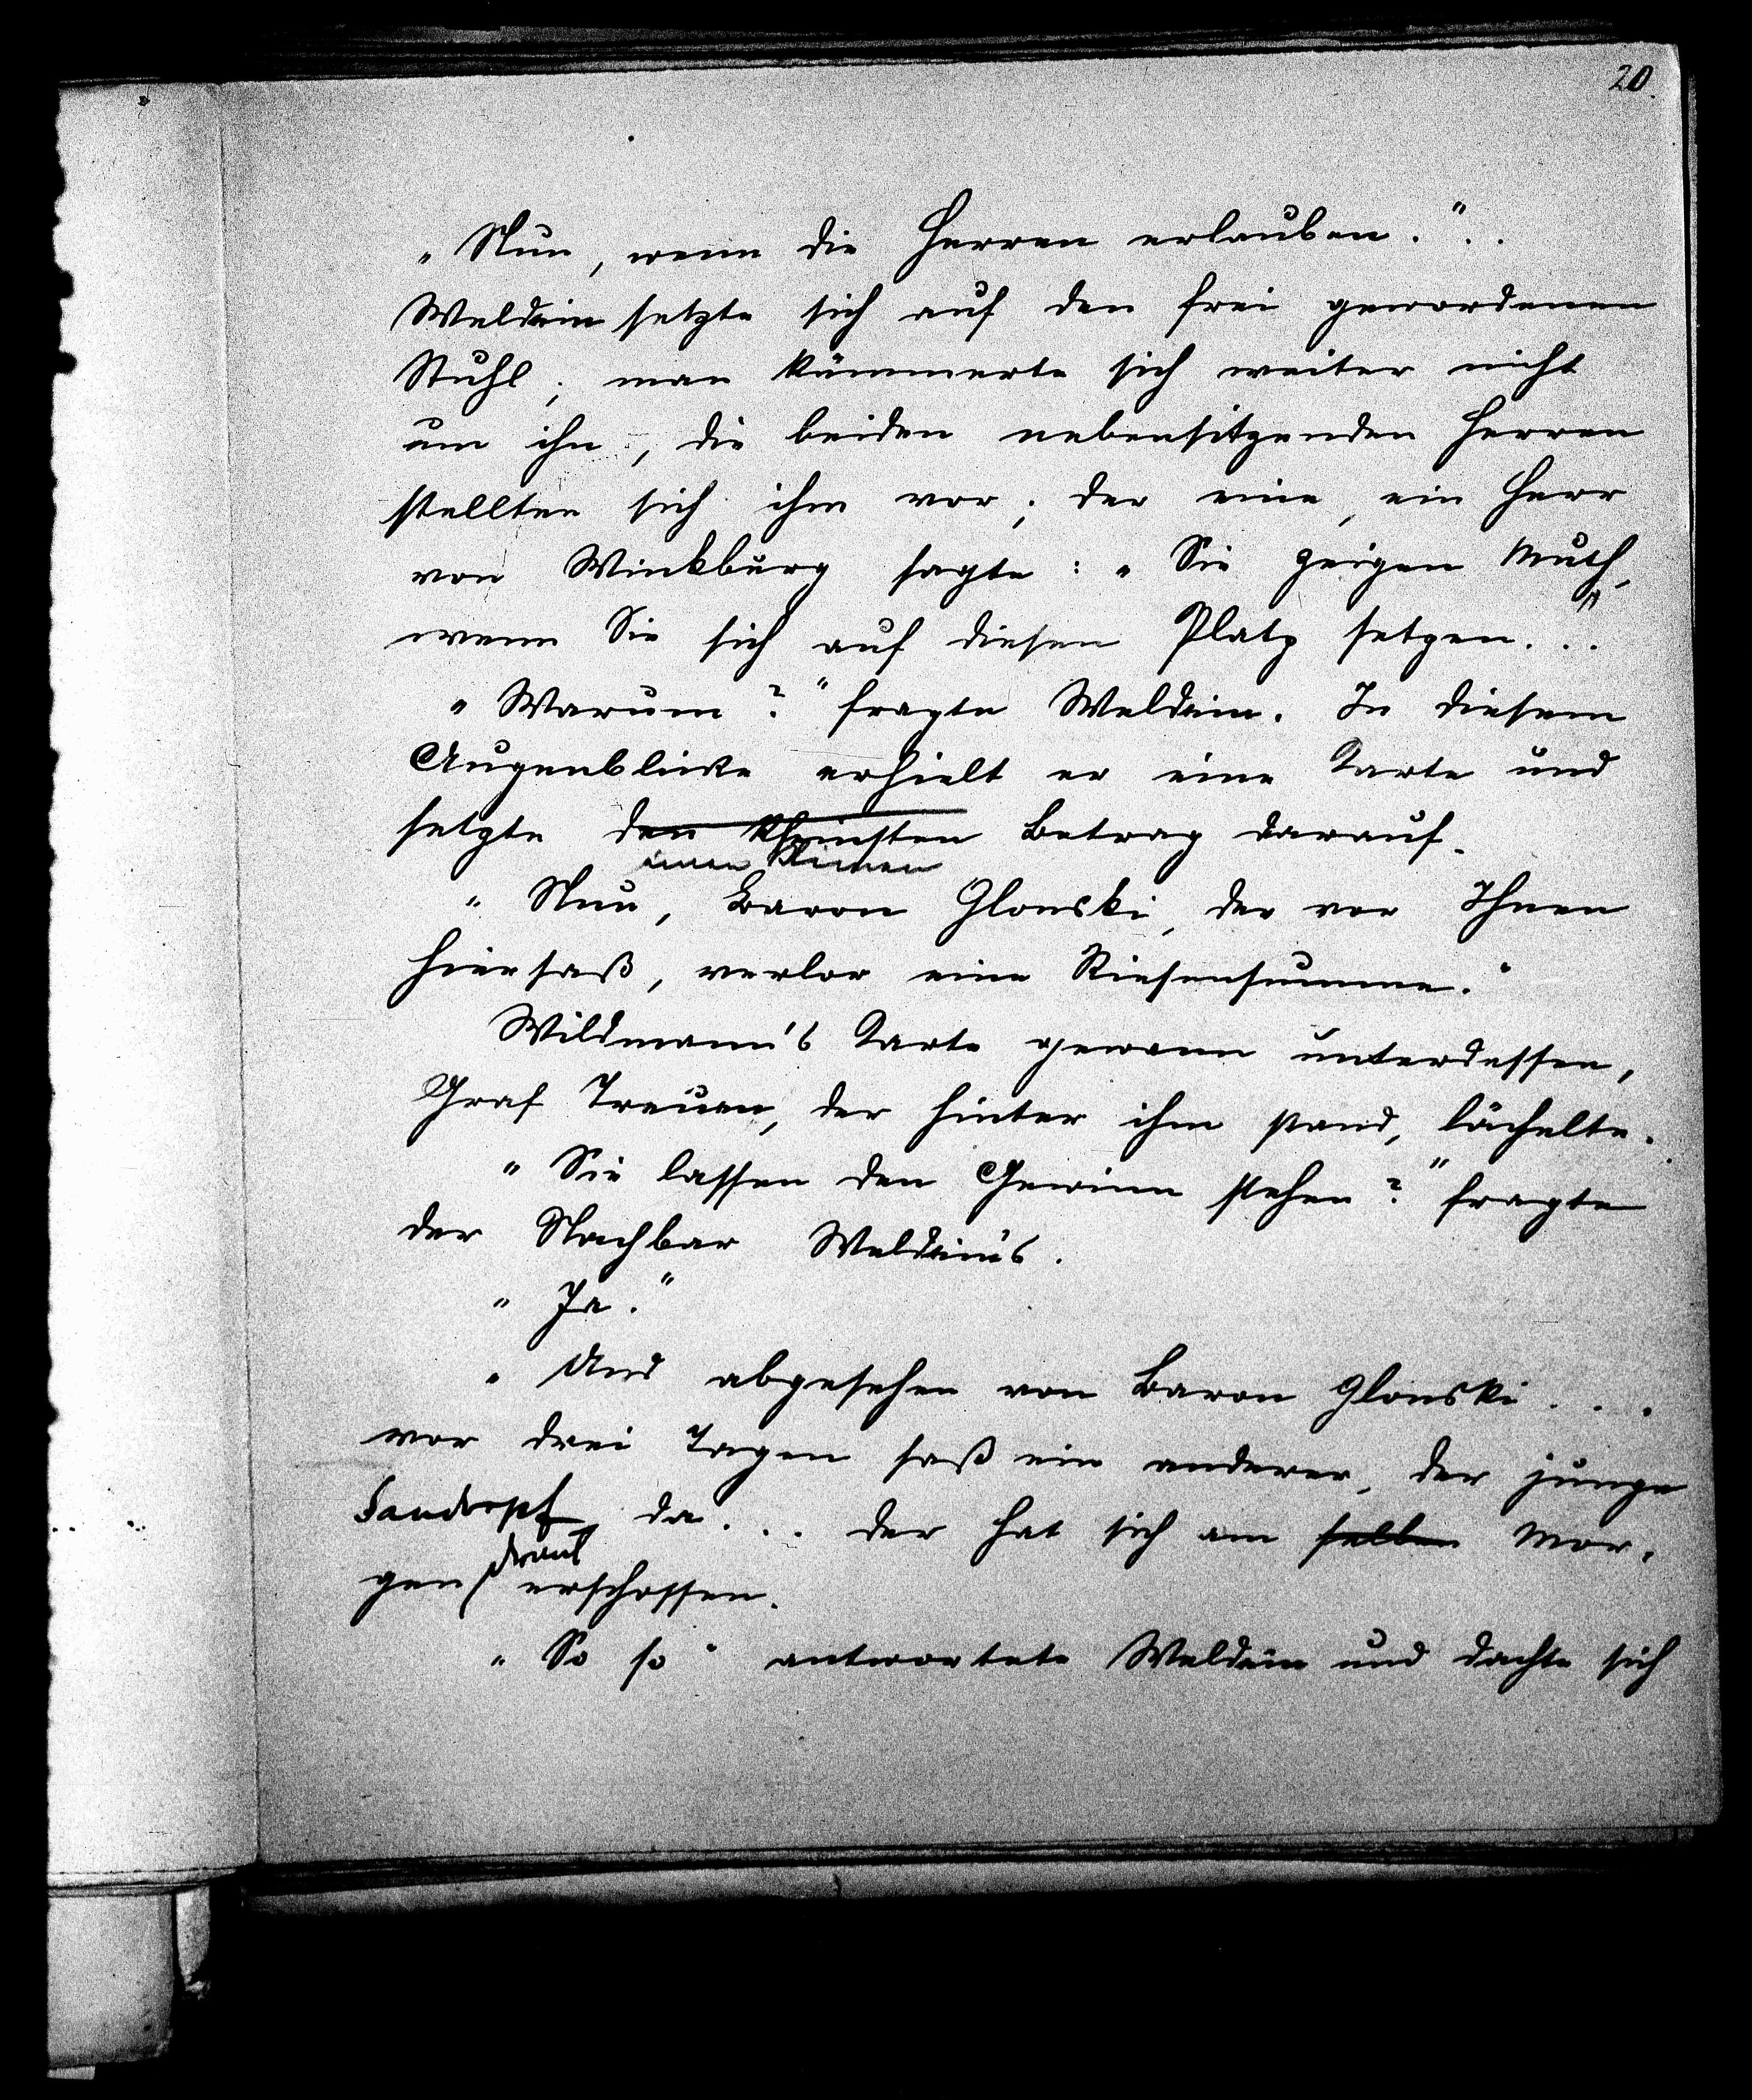 20.
„Nun, wenn die Herren erlauben.“..
Weldein setzte sich auf den frei gewordenen
Stuhl; man kümmerte sich weiter nicht
um ihn, die beiden nebensitzenden Herren
stellten sich ihm vor; der eine, ein Herr
von Winkburg sagte: „Sie zeigen Muth,
wenn Sie sich auf diesen Platz setzen...“
„Warum?“ fragte Weldein. In diesem
Augenblicke erhielt er eine Karte und
setzte den kleinsten Betrag darauf.
einen kleinen
„Nun, Baron Glonski, der vor Ihnen
hiersaß, verlor eine Riesensumme.“
Wildmann's Karte gewann unterdessen,
Graf Treuen, der hinter ihm stand, lächelte.
„Sie lassen den Gewinn stehen?“ fragte
der Nachbar Weldeins.
„Ja.“
„Und abgesehen von Baron Glonski...
vor drei Tagen saß ein anderer, der junge
da... der hat sich am selben Mor-
drauf
gen erschossen.
„So so“ antwortete Weldein und dachte sich